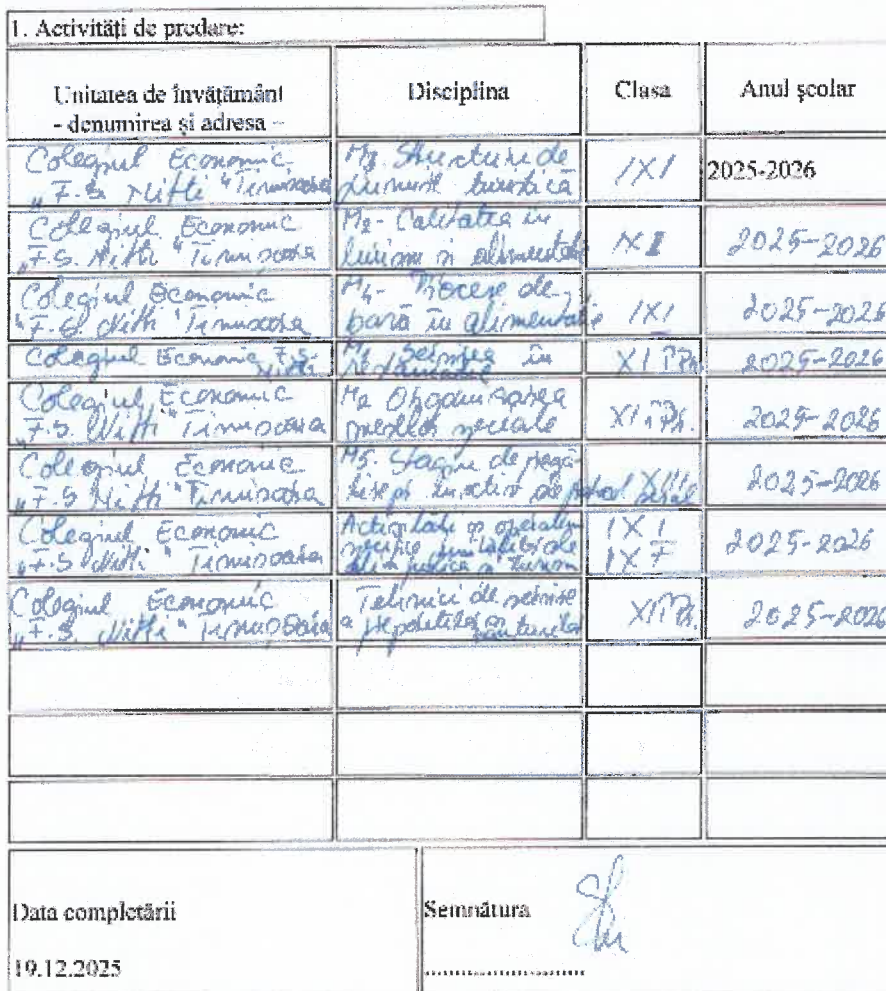 1. Activități de predare:
Unitatea de învățământ
- denumirea și adresa –
Disciplina
Clasa
Anul școlar
Colegiul Economic
„F.S. Nitti" Timișoara
M3. Structuri de
primire turistică
IX I
2025-2026
Colegiul Economic
„F.S. Nitti" Timișoara
M2- Calitatea în
turism și alimentație
2025-2026
Colegiul Economic
"F.S. Nitti" Timișoara
M4- Procese de
bază în alimentație
IX I
2025-2026
Colegiul Economic F.S.
Nitti
M1 Servirea în
restaurație
XI
2025-2026
Colegiul Economic
„F.S. Nitti" Timișoara
M2 Organizarea
meselor speciale
XI
2025-2026
Colegiul Economic
„F.S Nitti" Timișoara
M5. Stagiu de pregă
tire
2025-2026
Colegiul Economic
„F.S Nitti" Timișoara
Activități și operații
specifice unităților de
turism
IX I
IX F
2025-2026
Colegiul Economic
„F.S. Nitti" Timișoara
Tehnici de servire
a preparatelor și
băuturilor
2025-2026
Data completării
Semnătura
19.12.2025